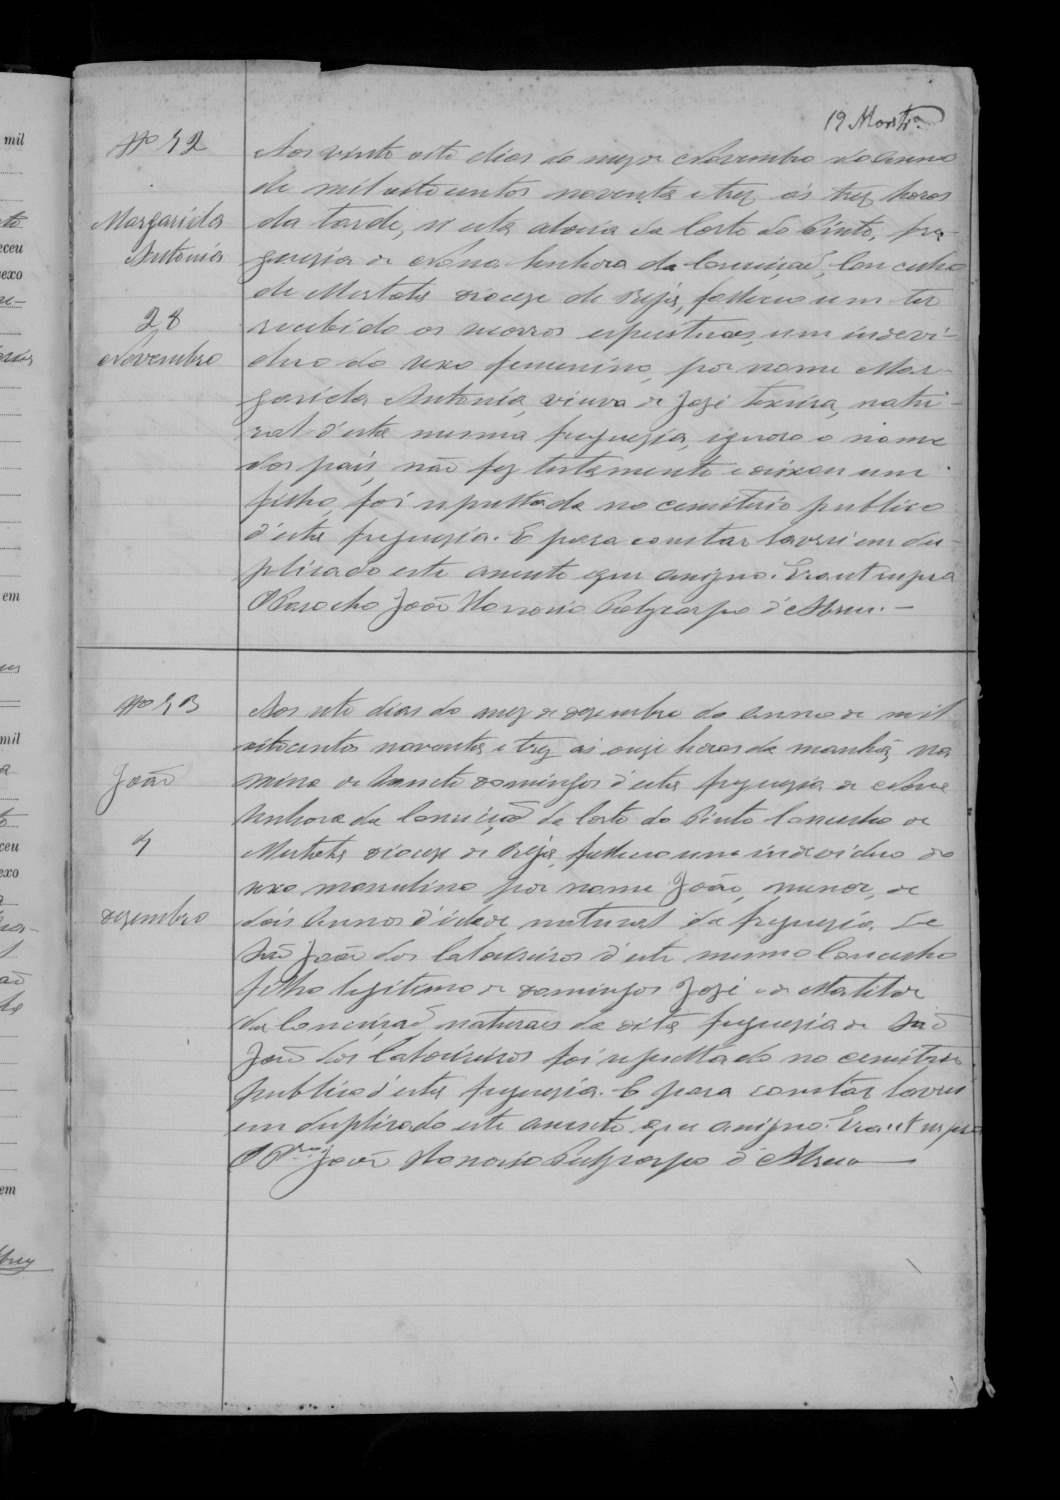 19
Nº 52
Margarida
Antonia
28
Novembro
Aos vinte oito dias do mez de Novembro do anno
de mil oito centos noventa e trez ás trez horas
da tarde, n'esta aldeia da Corte do Pinto, fre-
guesia de Nossa Senhora da Conceição, Concelho
de Mertola diocese de Beja, falleceu sem ter
recebido os socorros espirituaes, um indevi-
duo do sexo femenino, por nome Mar-
garida Antonia, viuva de José Texeira, natu-
ral d'esta mesma freguesia, ignoro o nome
dos pais, não fez testamento e deixou um
filho, foi sepultada no cemiterio publico
d'esta freguesia. E para constar lavrei em du-
plicado este assento que assigno. Era ut supra
O Parocho João Honorio Polycarpo d'Abreu.
Nº 53
João
Dezembro
Aos sete dias do mez de Dezembro do anno de mil
oitocentos noventa e trez ás onze horas da manhã, na
mina de Sancto Domingos d'esta freguesia de Nossa
Senhora da Conceição da Corte do Pinto Concelho de
Mertola diocese de Beja, falleceu um individuo do
sexo masculino por nome João, menor, de
dois annos d'idade natural da freguesia de
São João dos Caldeireiros d'este mesmo Concelho
filho legitimo de Domingos José e de Matilde
da Conceição naturaes da dita freguesia de São
João dos Caldeireiros foi sepultado no cemiterio
publico d'esta freguesia. E para constar lavrei
em duplicado este assento que assigno. Era ut supra
João Honorio Polycarpo d'Abreu